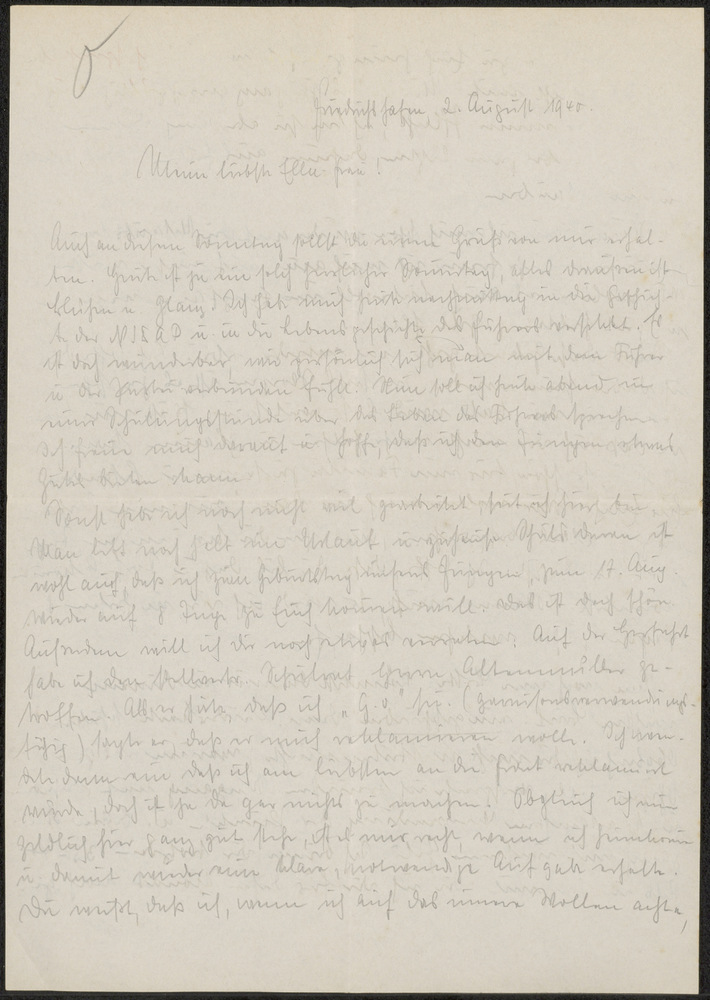 Friedrichshafen, 2. August 1940.
Meine liebste Ella frau!
Auch an diesem Sonntag sollst Du einen Gruß von mir erhal-
ten. Heute ist ja ein solch herrlicher Sonntag, alles draußen ist
Blühen u. Glanz. Ich hab mich heute nachmittag in die Geschich-
te der NSDAP u. in die Lebensgeschichte des Führers versenkt. Es
ist doch wunderbar, wie persönlich sich man mit dem Führer
u. der Partei verbunden fühlt. Nun soll ich heute abend in
einer Schulungsstunde über das Leben des Führers sprechen.
Ich freue mich darauf u. hoffe, daß ich den Jungen etwas
Gutes bieten kann.
Sonst habe ich noch nicht viel gearbeitet, seit ich hier bin.
Man lebt noch halt im Urlaub u. daran ist
wohl auch, daß ich zum Geburtstag unseres Jungen, zum 17. Aug.
wieder auf 8 Tage zu Euch kommen will. Das ist doch schön.
Außerdem will ich dir noch etwas verraten. Auf der Herfahrt
habe ich den stellvertr. Schulrat Herrn Altenmüller ge-
troffen. Als er hörte, daß ich „G.v." sei. (garnisonsverwendungs-
fähig) sagte er, daß er mich reklamieren wolle. Ich wen-
dete dann ein, daß ich am liebsten an die Front reklamiert
würde, doch ist ja da gar nichts zu machen. Obgleich ich nun
geldlich hier ganz gut stehe, ist es mir recht, wenn ich heimkomme
u. damit wieder eine klare, notwendige Aufgabe erhalte.
Du weißt, daß ich, wenn ich auf das innere Wollen achte,